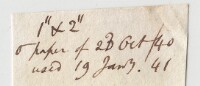 1" & 2"
o paper of 23 Oct /40
used 19 Jany. 41